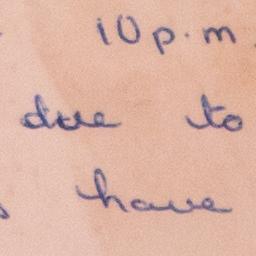 10 p.m.
due to
have